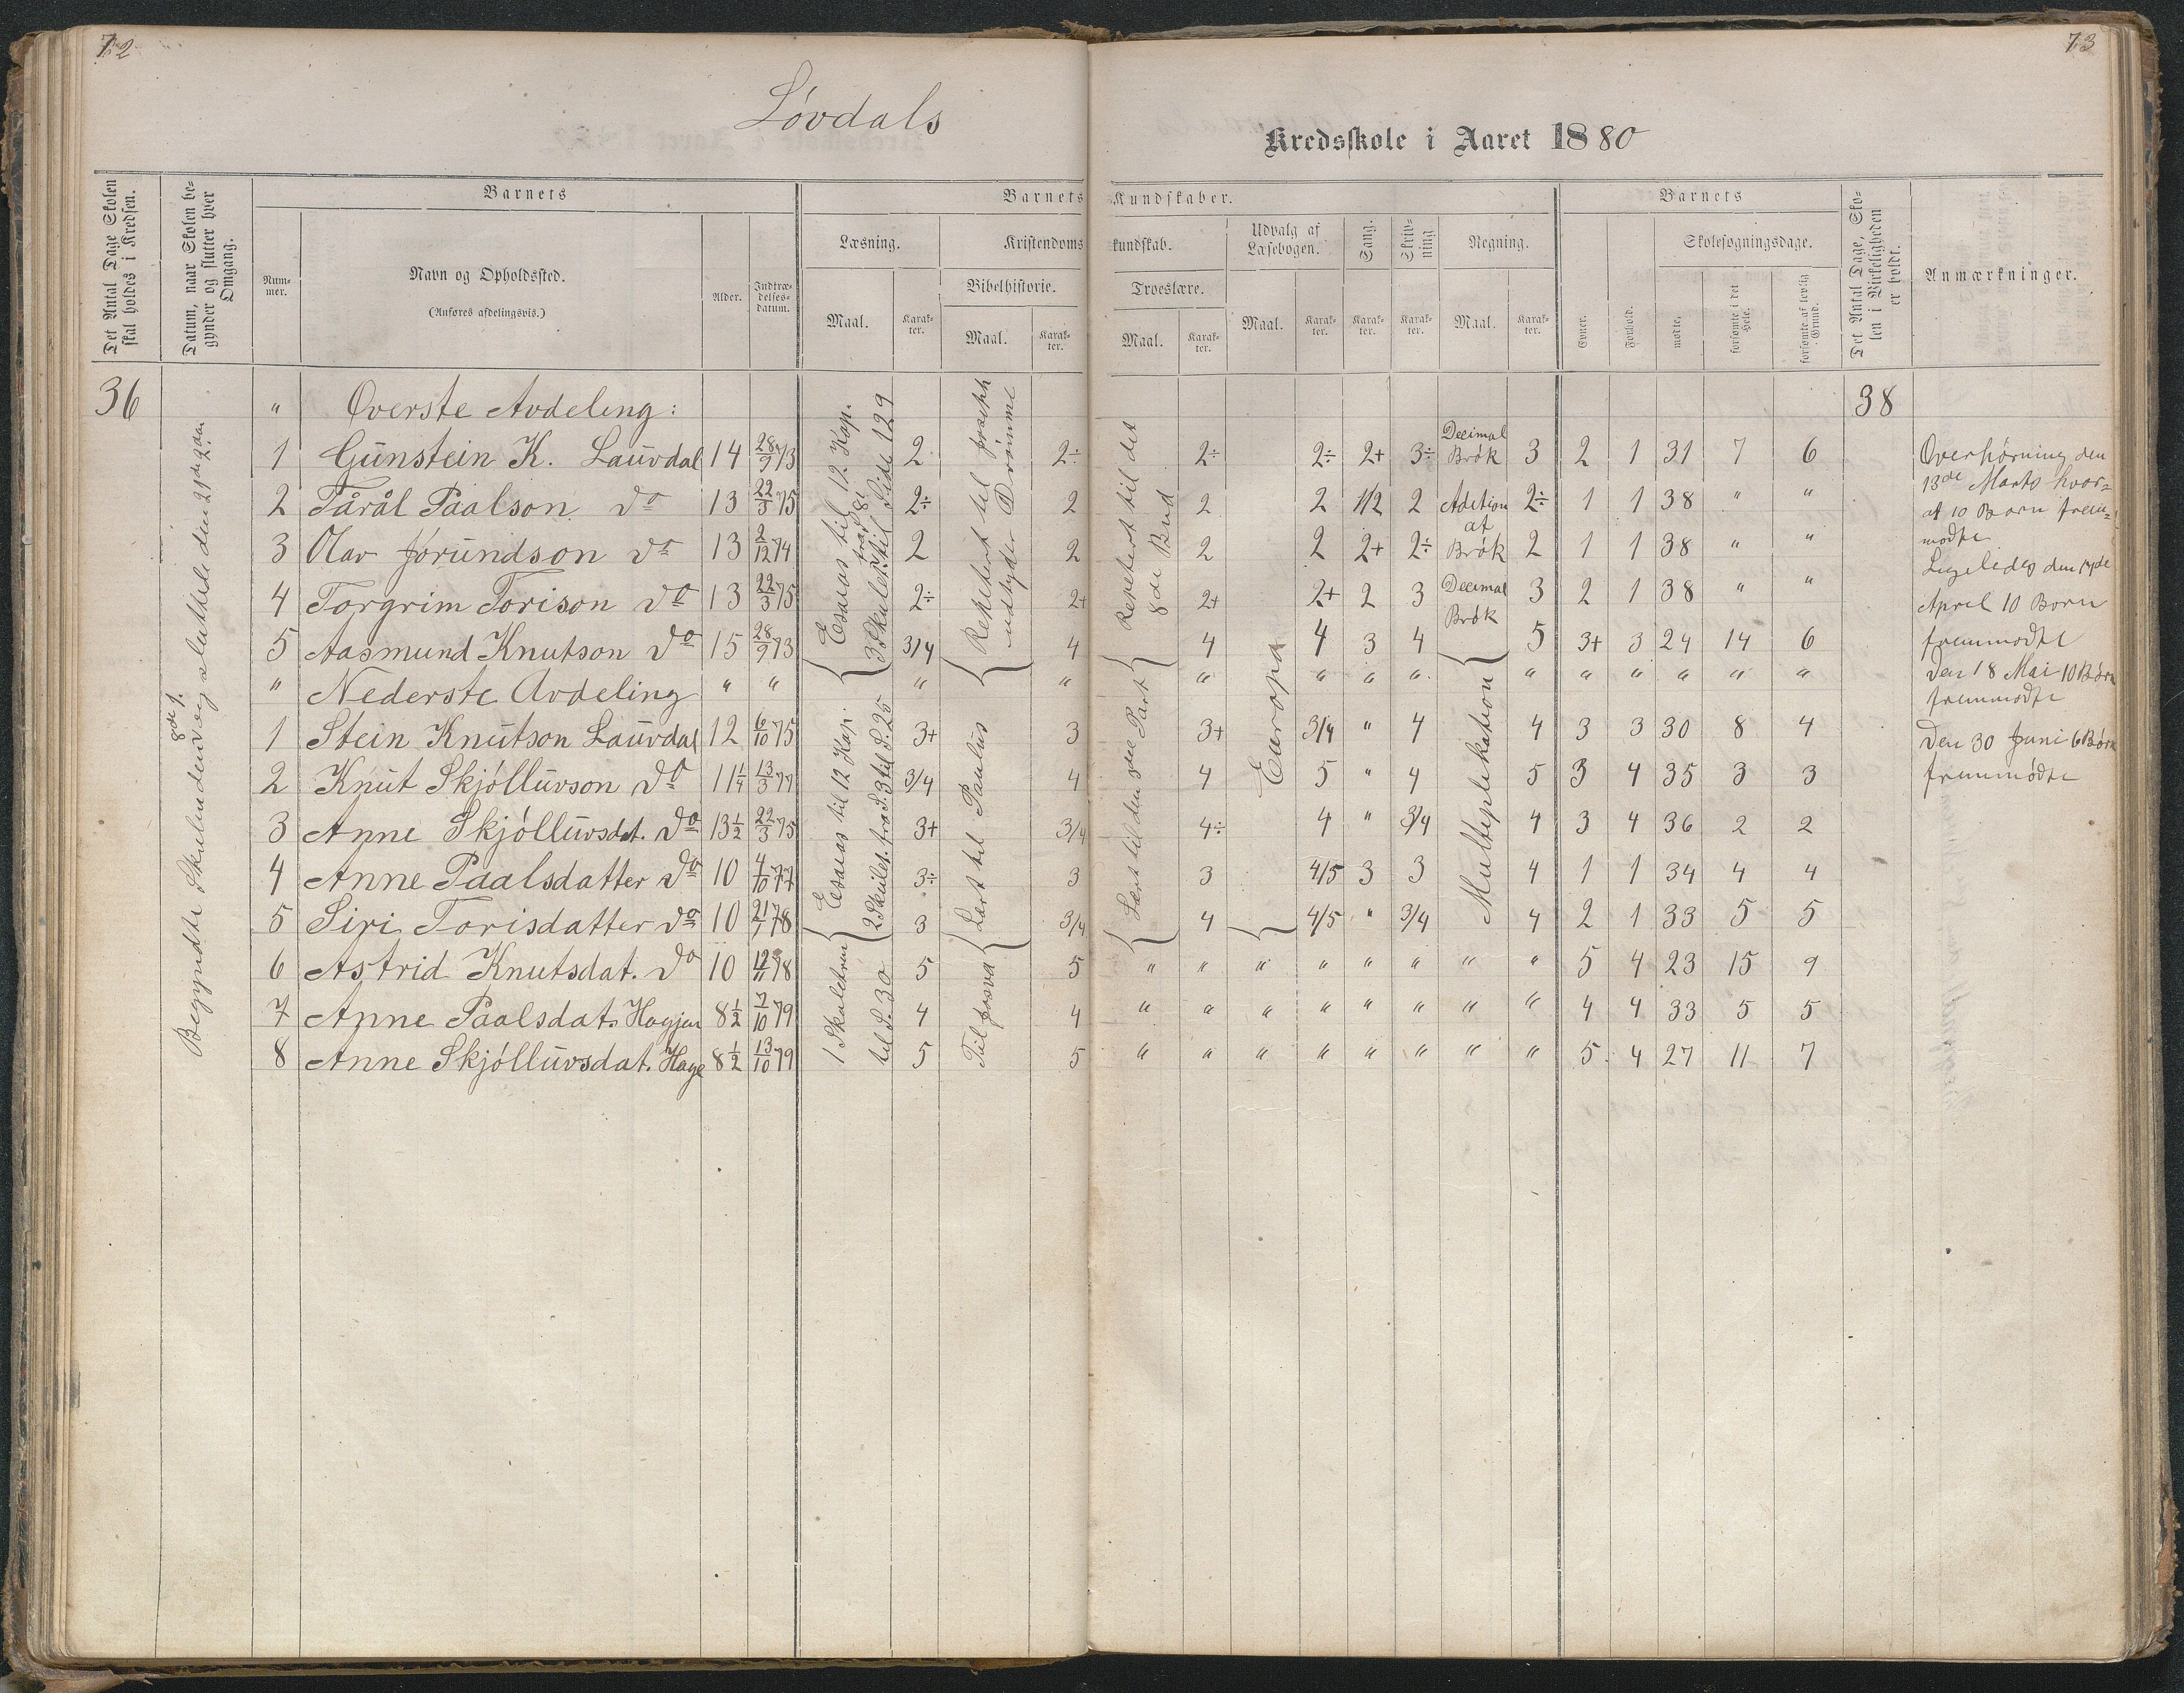 72
73
Lövdals
Kredsskole i Aaret 1880
Det Antal Dage Skolen skal holdes i Kredsen.
Datum, naar Skolen begynder og slutter hver Omgang.
Barnets
Nummer.
Navn og Opholdssted.
(Anføres afdelingsvis.)
Alder.
Indtrædelsesdatum.
Barnets Kundskaber.
Læsning.
Maal.
Karakter.
Kristendomskundskab.
Bibelhistorie.
Maal.
Karakter.
Troeslære.
Maal.
Karakter.
Udvalg af Læsebogen.
Maal.
Karakter.
Sang.
Karakter.
Skrivning
Karakter.
Regning.
Maal.
Karakter.
Barnets
Evner.
Forhold.
Skolesøgningsdage.
mødte,
forsømte i det Hele.
forsømte af lovlig Grund.
Det Antal Dage, Skolen i Virkeligheden er holdt.
Anmærkninger.
36 " Overste Avdeling: 38
1 Gunstein K. Lauvdal 14 28/9 73 2 2÷ 2÷ 2÷ 2+ 3÷ Decimal Brøk 3 2 1 31 7 6
2 Tårål Paalson do 13 22/3 75 2÷ 2 2 2 1/2 2 Adition af 2÷ 1 1 38 " "
3 Olav Jorundson do 13 2/12 74 2 2 2 2 2+ 2÷ Brøk 2 1 1 38 " "
4 Torgrim Torison do 13 22/3 75 2÷ 2+ 2+ 2+ 2 3 Decimal Brøk 3 2 1 38 " "
5 Aasmund Knutson do 15 28/9 73 3/4 4 4 4 3 4 5 3+ 3 24 14 6
" Nederste Avdeling " " " " " " " " " " " " " "
1 Stein Knutson Lauvdal 12 6/10 75 3+ 3 3+ 3/4 " 4 4 3 3 30 8 4
2 Knut Skjøllüvson do 11 1/4 13/3 77 3/4 4 4 5 " 4 5 3 4 35 3 3
3 Anne Skjøllüvsdat. do 13 1/2 22/3 75 3+ 3/4 4÷ 4 " 3/4 4 3 4 36 2 2
4 Anne Paalsdatter do 10 4/10 77 3÷ 3 3 4/5 3 3 4 1 1 34 4 4
5 Siri Torisdatter do 10 21/1 78 3 3/4 4 4/5 " 3/4 4 2 1 33 5 5
6 Astrid Knutsdat. do 10 12/11 78 5 5 " " " " " " " " 5 4 23 15 9
7 Anne Paalsdat. Hagjen 8 1/2 7/10 79 4 4 " " " " " " " " 4 4 33 5 5
8 Anne Skjøllüvsdat. Hage 8 1/2 13/10 79 5 5 " " " " " " " " 5 4 27 11 7
Begyndte Skulen den og sluttede den 21de
Esaias til 12 Kap.
3 Skulet. til Side 129
Repetert til
udtyder Drömme
Repetert til det
8de Bud
Esaias til 12 Kap.
2 Skulet. fra S. 3 til S. 25
Lært til Paulus
Lært til den Part
Europa
Multeplikation
1 Skuletrin
til S. 30
Til Josva
Overhørning den
13de Marts hvor=
af 10 Born frem=
modte
Ligeledes den 17de
April 10 Born
fremmodte
Den 18 Mai 10 Børn
fremmodte
Den 30 Juni 6 Børn
fremmødte